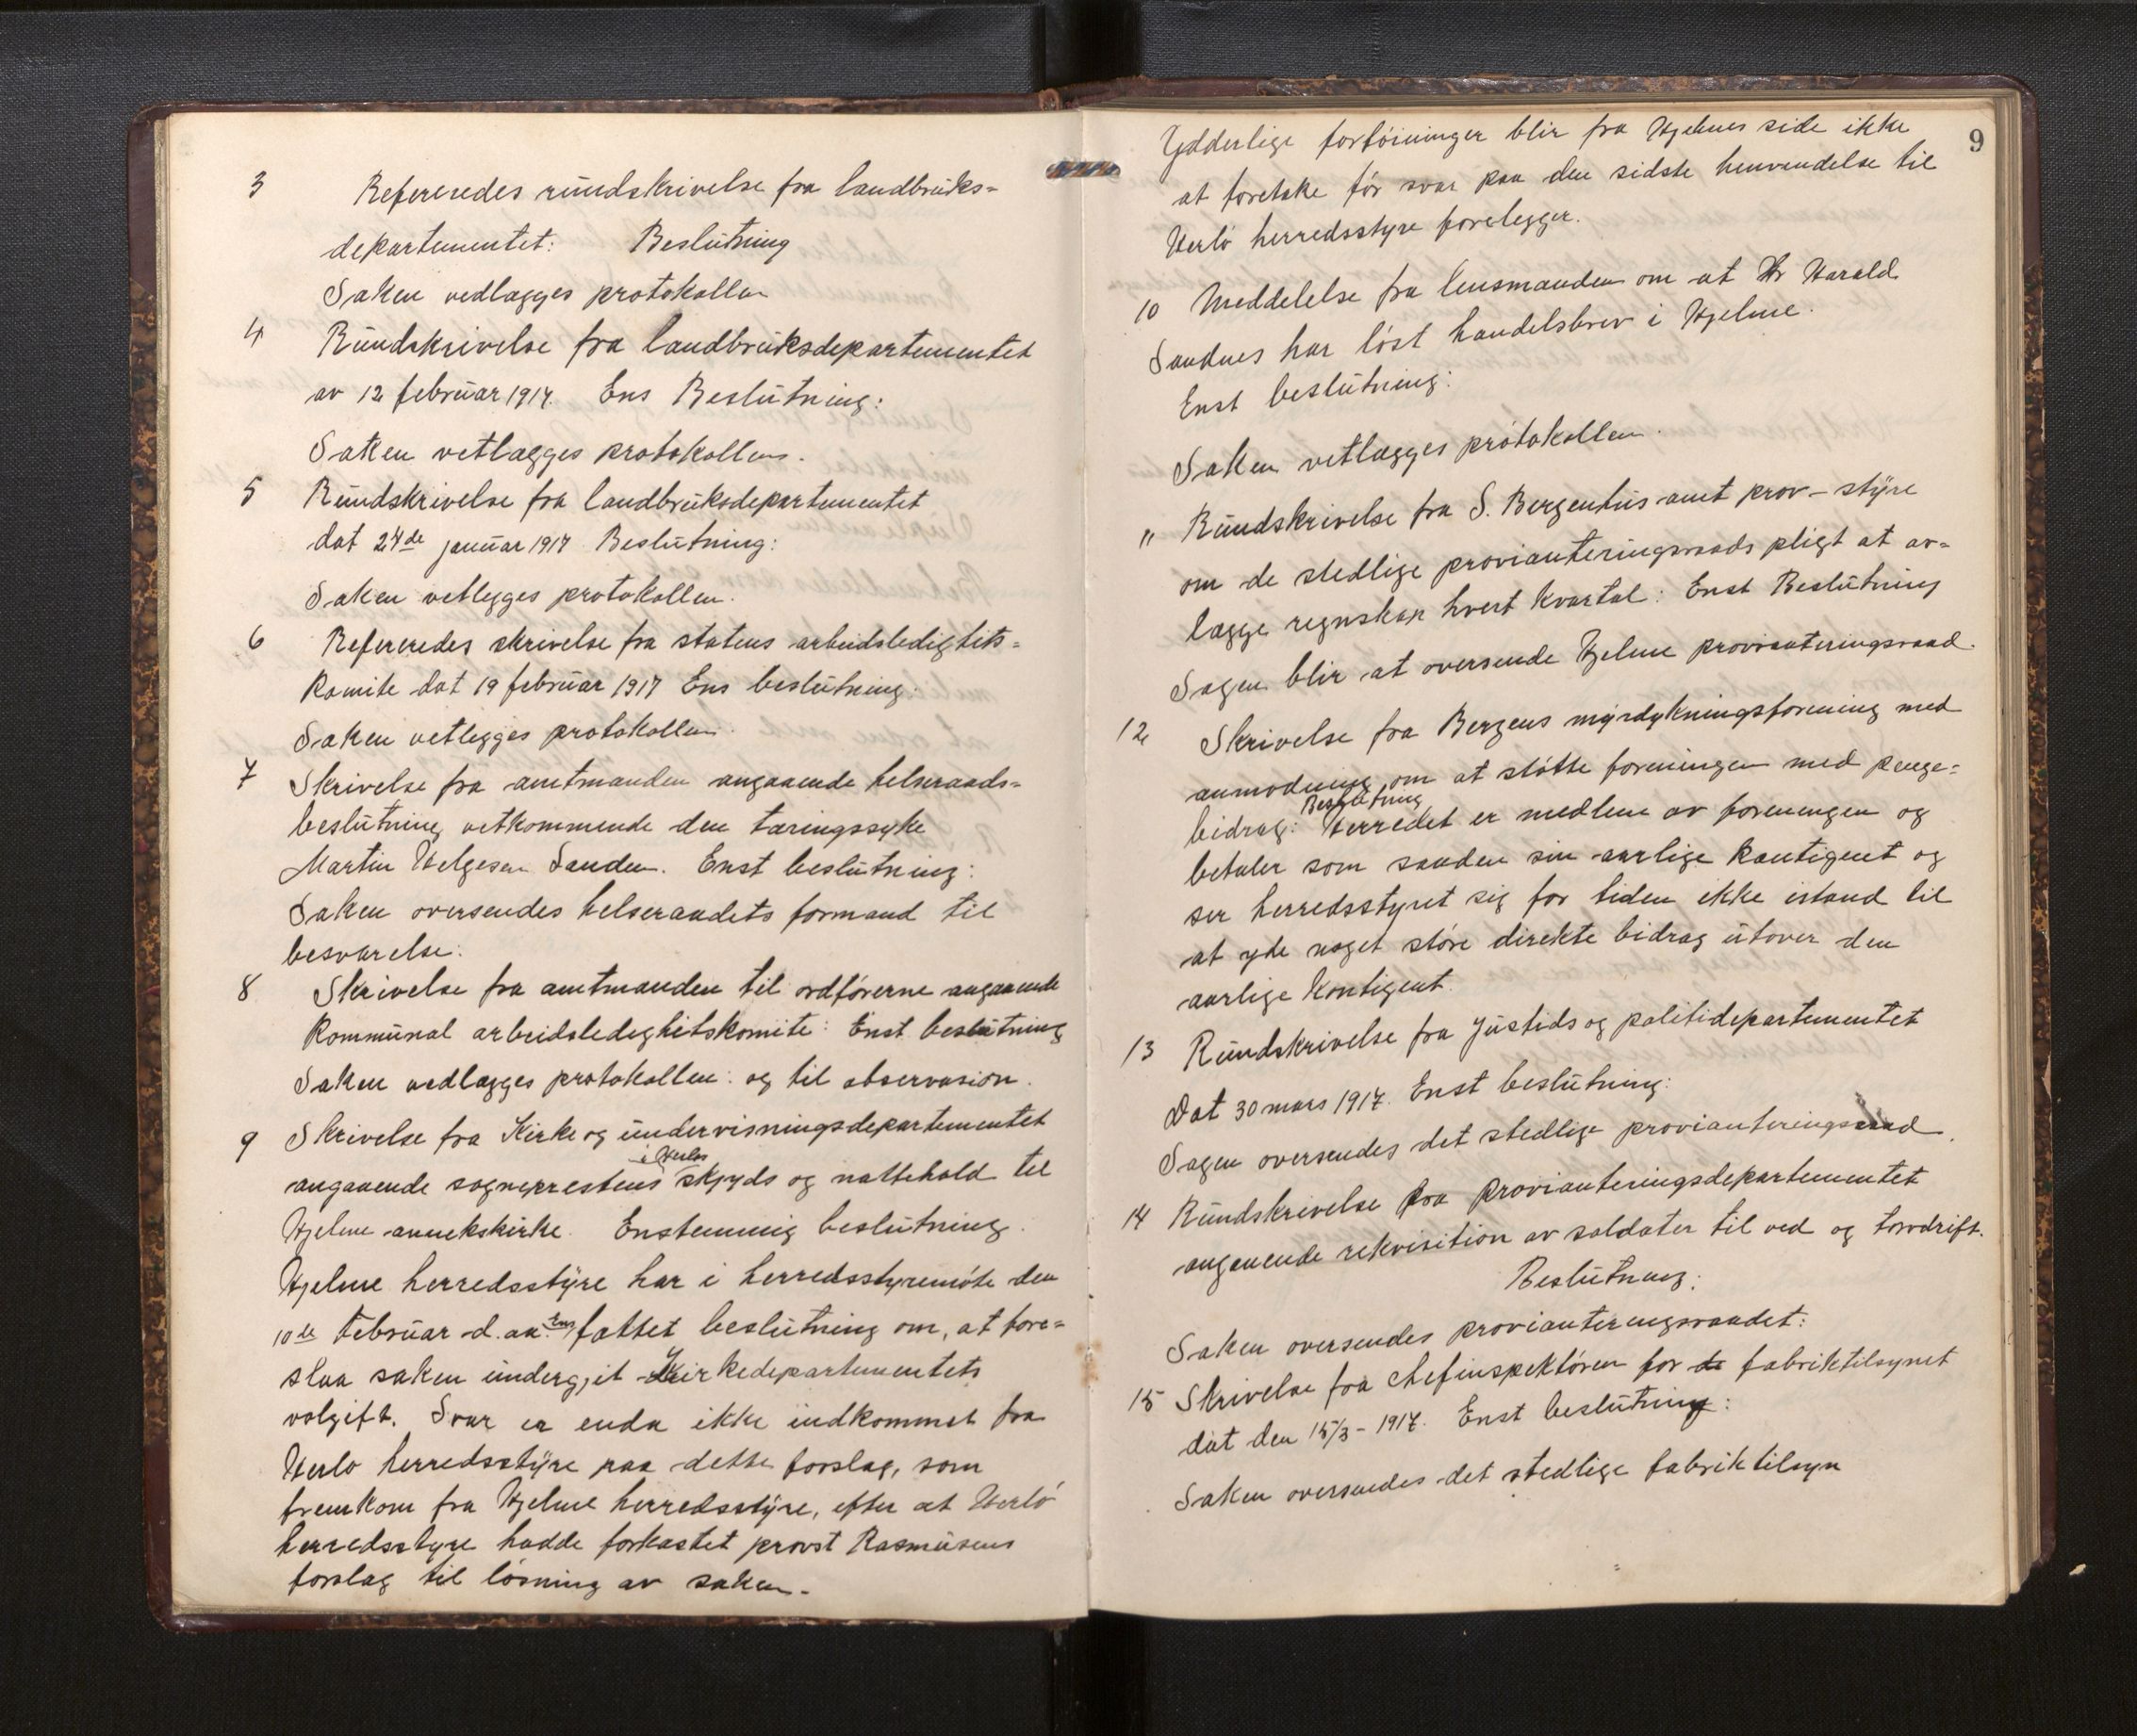 3 Refereredes rundskrivelse fra landbruks=
departementet: Beslutning
Saken vedlægges protokollen
4 Rundskrivelse fra landbruksdepartementet
av 12 februar 1917. Ens Beslutning:
Saken vetlægges protokollen.
5 Rundskrivelse fra landbruksdepartementet
dat 24de januar 1917 Beslutning:
Saken vetlegges protokollen.
6 Refereredes skrivelse fra statens arbeidsledighets=
komite dat 19 februar 1917 Ens beslutning:
Saken vetlegges protokollen.
7 Skrivelse fra amtmanden angaaende helseraads=
beslutning vetkommende den tæringssyke
Martin Helgesen Sanden. Enst beslutning:
Saken oversendes helseraadets formand til
besvarelse:
8 Skrivelse fra amtmanden til ordförerne angaaende
kommunal arbeidsledeghetskomite: Enst beslutning
Saken vedlægges protokollen: og til observasion.
9 Skrivelse fra Kirke og undervisningsdepartementet
i Herlø
angaaende sogneprestens skjyds og nattehold til
Hjelme annekskirke. Enstemmig beslutning.
Hjelme herredsstyre har i herredsstyremöte den
10de februar d. aa. Ens fattet beslutning om, at fore=
slaa saken undergjit Kirkedepartementets
volgift. Svar er enda ikke indkommet fra
Herlö herredsstyre paa dette forslag, som
fremkom fra Hjelme herredsstyre, efter at Herlö
herredsstyre hadde forkastet provst Rasmusens
forslag til lösning av saken.
9
Ydderlige forföininger blir fra Hjelmes side ikke
at foretake för svar paa den sidste henvendelse til
Herlö herredsstyre forelegger.
10 Meddelelse fra lensmanden om at Hr Harald
Sandnes har löst handelsbrev i Hjelme.
Enst beslutning:
Saken vetlægges protokollen.
11 Rundskrivelse fra S. Bergenhus amt prov-styre
om de stedlige provianteringsraads pligt at av=
lægge regnskap hvert kvartal: Enst Beslutning
Sagen blir at oversende Hjelme provianteringsraad.
12 Skrivelse fra Bergens myrdykningsforening med
anmodning om at stötte foreningen med penge=
Beslutning
bidrag: Herredet er medlem av foreningen og
betaler som saaden sin aarlige kontigent og
ser herredsstyret sig for tiden ikke istand til
at yde noget störe direkte bidrag utover den
aarlige kontigent.
13 Rundskrivelse fra Justids og politidepartementet
Dat 30 mars 1917. Enst beslutning:
Sagen oversendes det stedlige provianteringsraad.
14 Rundskrivelse fra provianteringsdepartementet
angaaende rekvisition av soldater til ved og torvdrift.
Beslutning:
Saken oversendes provianteringsraadet:
15 Skrivelse fra chefinspektören for de fabriktilsynet
dat den 15/3 - 1917. Enst beslutning:
Saken oversendes det stedlige fabriktilsyn